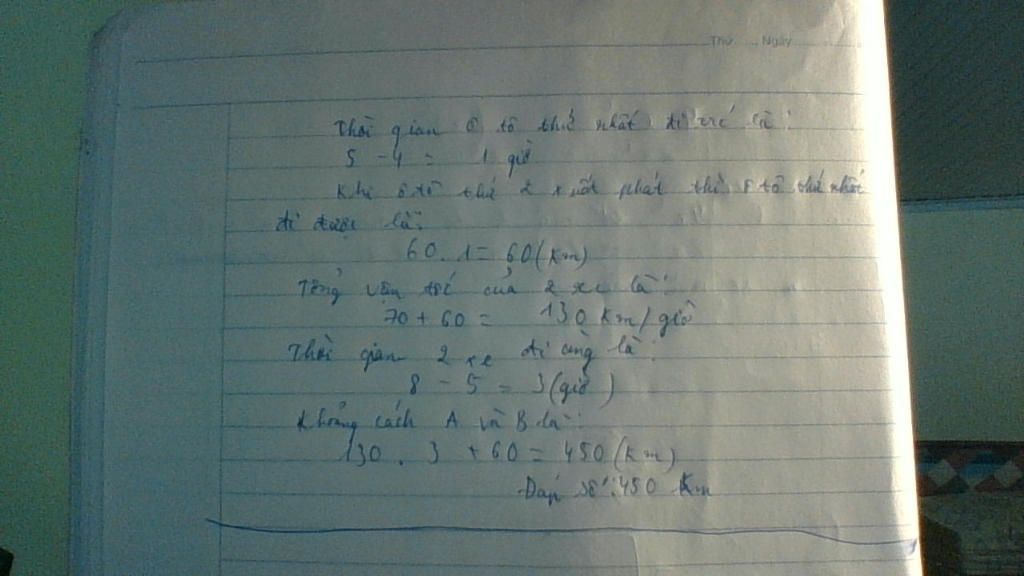 Thứ Ngày
Thời gian ô tô thứ nhất đi trước là:
5 - 4 = 1 giờ
Khi ô tô thứ 2 xuất phát thì ô tô thứ nhất
đi được là:
60 . 1 = 60 (km)
Tổng vận tốc của 2 xe là:
70 + 60 = 130 km/giờ
Thời gian 2 xe đi cùng là:
8 - 5 = 3 (giờ)
Khoảng cách A và B là:
130 . 3 + 60 = 450 (km)
Đáp số: 450 km